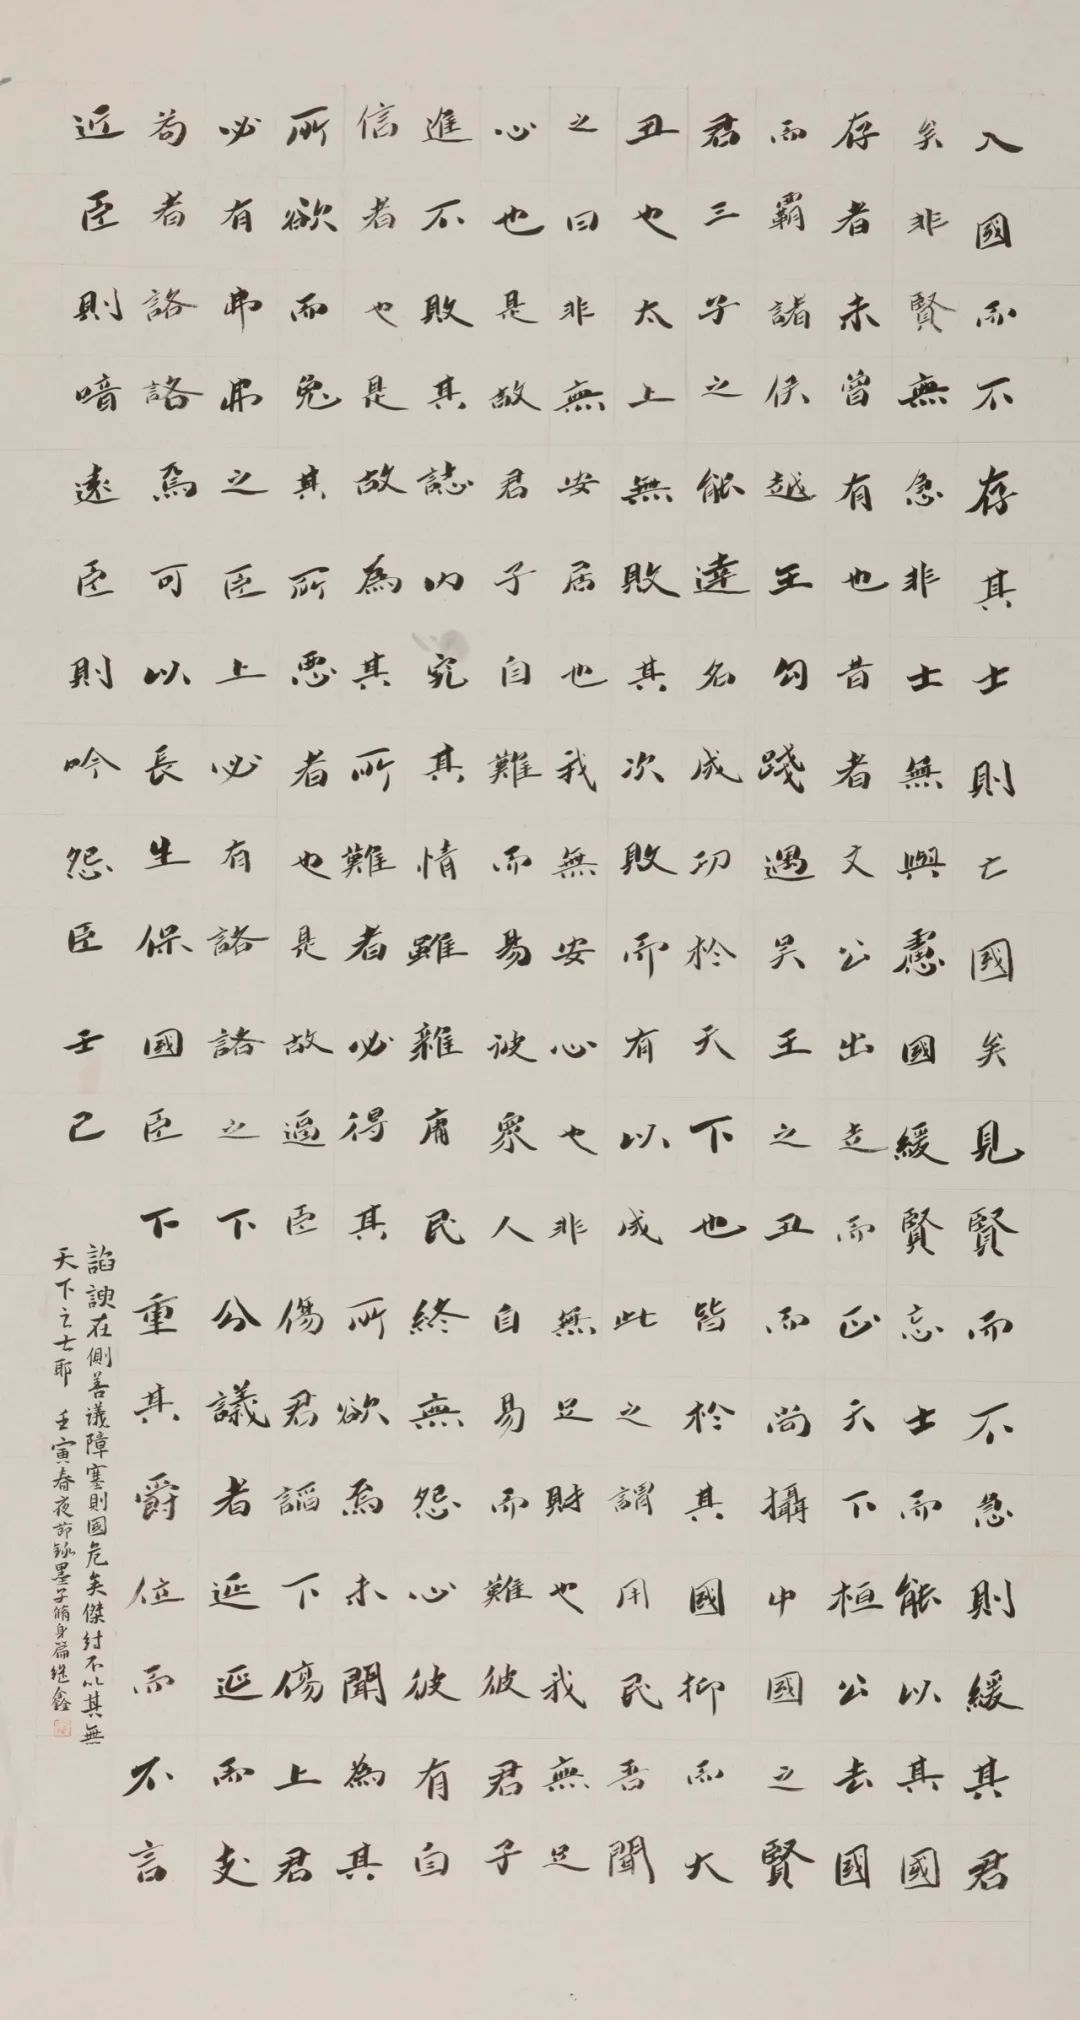 入國而不存其士則亡國矣見賢而不急則緩其君
矣非賢無急非士無與慮國緩賢忘士而能以其國
存者未曾有也昔者文公出走而正天下桓公去國
而霸諸侯越王勾踐遇吳王之丑而尚攝中國之賢
君三子之能達名成功於天下也皆於其國抑而大
丑也太上無敗其次敗而有以成此之謂用民吾聞
之曰非無安居也我無安心也非無足財也我無足
心也是故君子自難而易彼眾人自易而難彼君子
進不敗其誌內究其情雖雜庸民終無怨心彼有自
信者也是故為其所難者必得其所欲焉未聞為其
所欲而免其所惡者也是故逼臣傷君諂下傷上君
必有弗弗之臣上必有詻詻之下分議者延延而支
苟者詻詻焉可以長生保國臣下重其爵位而不言
近臣則喑遠臣則吟怨臣壬己
諂諛在側善議障塞則國危矣傑紂不以其無
天下之士耶 壬寅春夜節錄墨子脩身篇继鑫